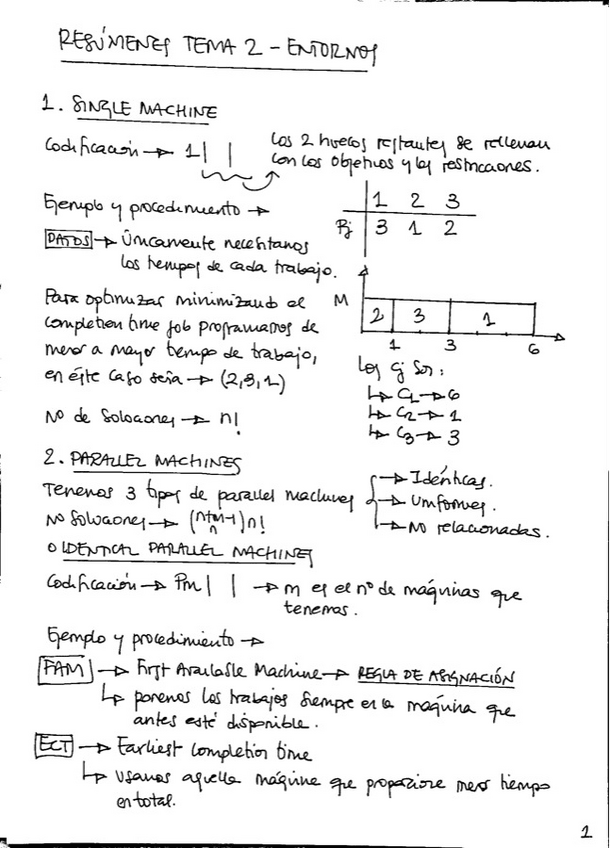 RESÚMENES TEMA 2 - ENTORNOS
1. SINGLE MACHINE
Codificación → 1| |
Los 2 huecos restantes se rellenan
con los objetivos y las restricciones.
Ejemplo y procedimiento →
1 2 3
Pj 3 1 2
DATOS → Únicamente necesitamos
los tiempos de cada trabajo.
Para optimizar minimizando el
completion time job programamos de
menor a mayor tiempo de trabajo,
en este caso sería → (2,3,1)
M 2 3 1
1 3 6
Los Cj son:
↳ C1 → 6
↳ C2 → 1
↳ C3 → 3
Nº de soluciones → n!
2. PARALLEL MACHINES
Tenemos 3 tipos de parallel machines
→ Idénticas.
→ Uniformes.
→ No relacionadas.
Nº Soluciones → (n+m-1 n) n!
o IDENTICAL PARALLEL MACHINES
Codificación → Pm| | → m es el nº de máquinas que
tenemos.
Ejemplo y procedimiento →
FAM → First Available Machine → REGLA DE ASIGNACIÓN
↳ ponemos los trabajos siempre en la máquina que
antes esté disponible.
ECT → Earliest completion time
↳ Usamos aquella máquina que proporcione menor tiempo
en total.
1